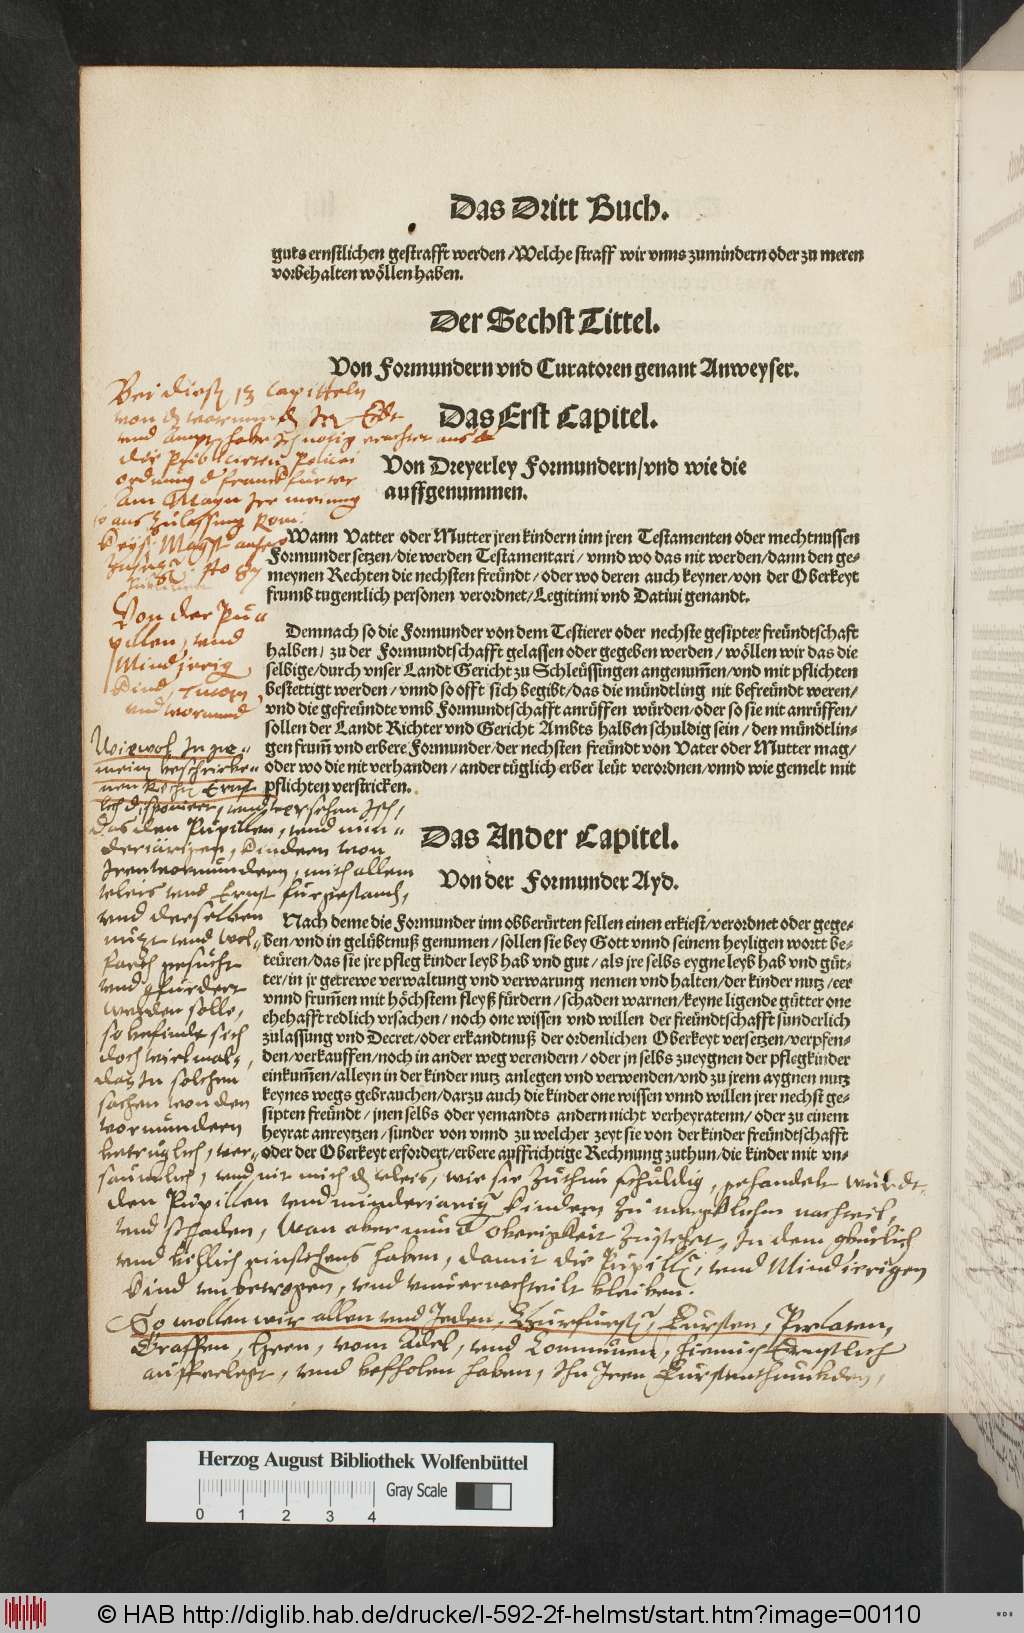 Das Dritt Buch.
guts ernstlichen gestrafft werden/Welche straff wir vnns zumindern oder zu meren
vorbehalten wöllen haben.
Der Sechst Tittel.
Von Formundern vnd Curatoren genant Anweyser.
Das Erst Capitel.
Von Dreyerley Formundern/vnd wie die
auffgenummen.
Wann Vatter oder Mutter jren kindern inn jren Testamenten oder mechtnussen
Formunder setzen/die werden Testamentari/vnnd wo das nit werden/dann den ge⸗
meynen Rechten die nechsten freündt/oder wo deren auch keyner/von der Oberkeyt
frumb tugentlich personen verordnet/Legitimi vnd Datiui genandt.
Demnach so die Formunder von dem Testierer oder nechste gesipter freündtschaft
halben/zu der Formundtschafft gelassen oder gegeben werden/wöllen wir das die
selbige/durch vnser Landt Gericht zu Schleüssingen angenum̄en/vnd mit pflichten
bestettigt werden/vnnd so offt sich begibt/das die mündtling nit befreündt weren/
vnd die gefreündte vmb Formundtschafft anrüffen würden/oder so sie nit anrüffen/
sollen der Landt Richter vnd Gericht Ambts halben schuldig sein/den mündtlin⸗
gen frum̄ vnd erbere Formunder/der nechsten freündt von Vater oder Mutter mag/
oder wo die nit verhanden/ander tüglich erber leüt verordnen/vnnd wie gemelt mit
pflichten verstricken.
Das Ander Capitel.
Von der Formunder Ayd.
Nach deme die Formunder inn obberürten fellen einen erkiest/verordnet oder gege⸗
ben/vnd in gelübtnuß genumen/sollen sie bey Gott vnnd seinem heyligen wort be⸗
teüren/das sie jre pfleg kinder leyb hab vnd gut/als jre selbs eygne leyb hab vnd güt⸗
ter/in jr getrewe verwaltung vnd verwarung nemen vnd halten/der kinder nutz/eer
vnnd frum̄en mit höchstem fleyß fürdern/schaden warnen/keyne ligende gütter one
ehehafft redlich vrsachen/noch one wissen vnd willen der freündtschafft sunderlich
zulassung vnd Decret/oder erkandtnuß der ordenlichen Oberkeyt versetzen/verpfen⸗
den/verkauffen/noch in ander weg verendern/oder jn selbs zueygnen der pflegkinder
einkum̄en/alleyn in der kinder nutz anlegen vnd verwenden/vnd zu jrem aygnen nutz
keynes wegs gebrauchen/darzu auch die kinder one wissen vnnd willen jrer nechst ge⸗
sipten freündt/jnen selbs oder yemandts andern nicht verheyratenn/oder zu einem
heyrat anreytzen/sunder von vnnd zu welcher zeyt sie von der kinder freündtschafft
oder der Oberkeyt erfordert/erbere auffrichtige Rechnung zuthun/die kinder mit vn⸗
Bei 13 Capitteln
Ordnung Franckfurter
Am Mayn
Von der Pu⸗
pillen, vnd
Minderjerig
Kind
vnd vormund
Wiewol In ge⸗
mein beschriebe⸗
nen Ernst
das den Pupillen, vnd min⸗
derjärigen, Kindern von
Iren vormundern, mit allem
vleis vnd Ernst furgestand,
vnd derselben
nutz vnd wol⸗
farth gesucht
vnd gfurdert
werden solle,
so befindt sich
doch vielmals,
das In solchen
sachen von den
vormundern
betruglich, ver⸗
saumlich, vnd nit mit vleis, wie sie Zuthun schuldig, gehandelt wurdt,
den Pupillen vnd minderjarig Kindern Zu mercklichem nachteil,
vnd schaden, Wan aber nun Oberigkeit Zustehet, In dem geburlich
vnd billich einsehens haben, damit die Pupillen, vnd Minderjerigen
Kind vnbetrogen, vnd vnuernachteilt bleiben.
So wollen wir allen vnd Jeden, Churfursten, Fursten, Prelaten,
Graffen, Hern, vom Adel, vnd Communen, hiemit Ernstlich
aufferlegt, vnd befholen haben, Inn Iren Furstenthumbden,
Herzog August Bibliothek Wolfenbüttel
Gray Scale
0 1 2 3 4
© HAB http://diglib.hab.de/drucke/l-592-2f-helmst/start.htm?image=00110